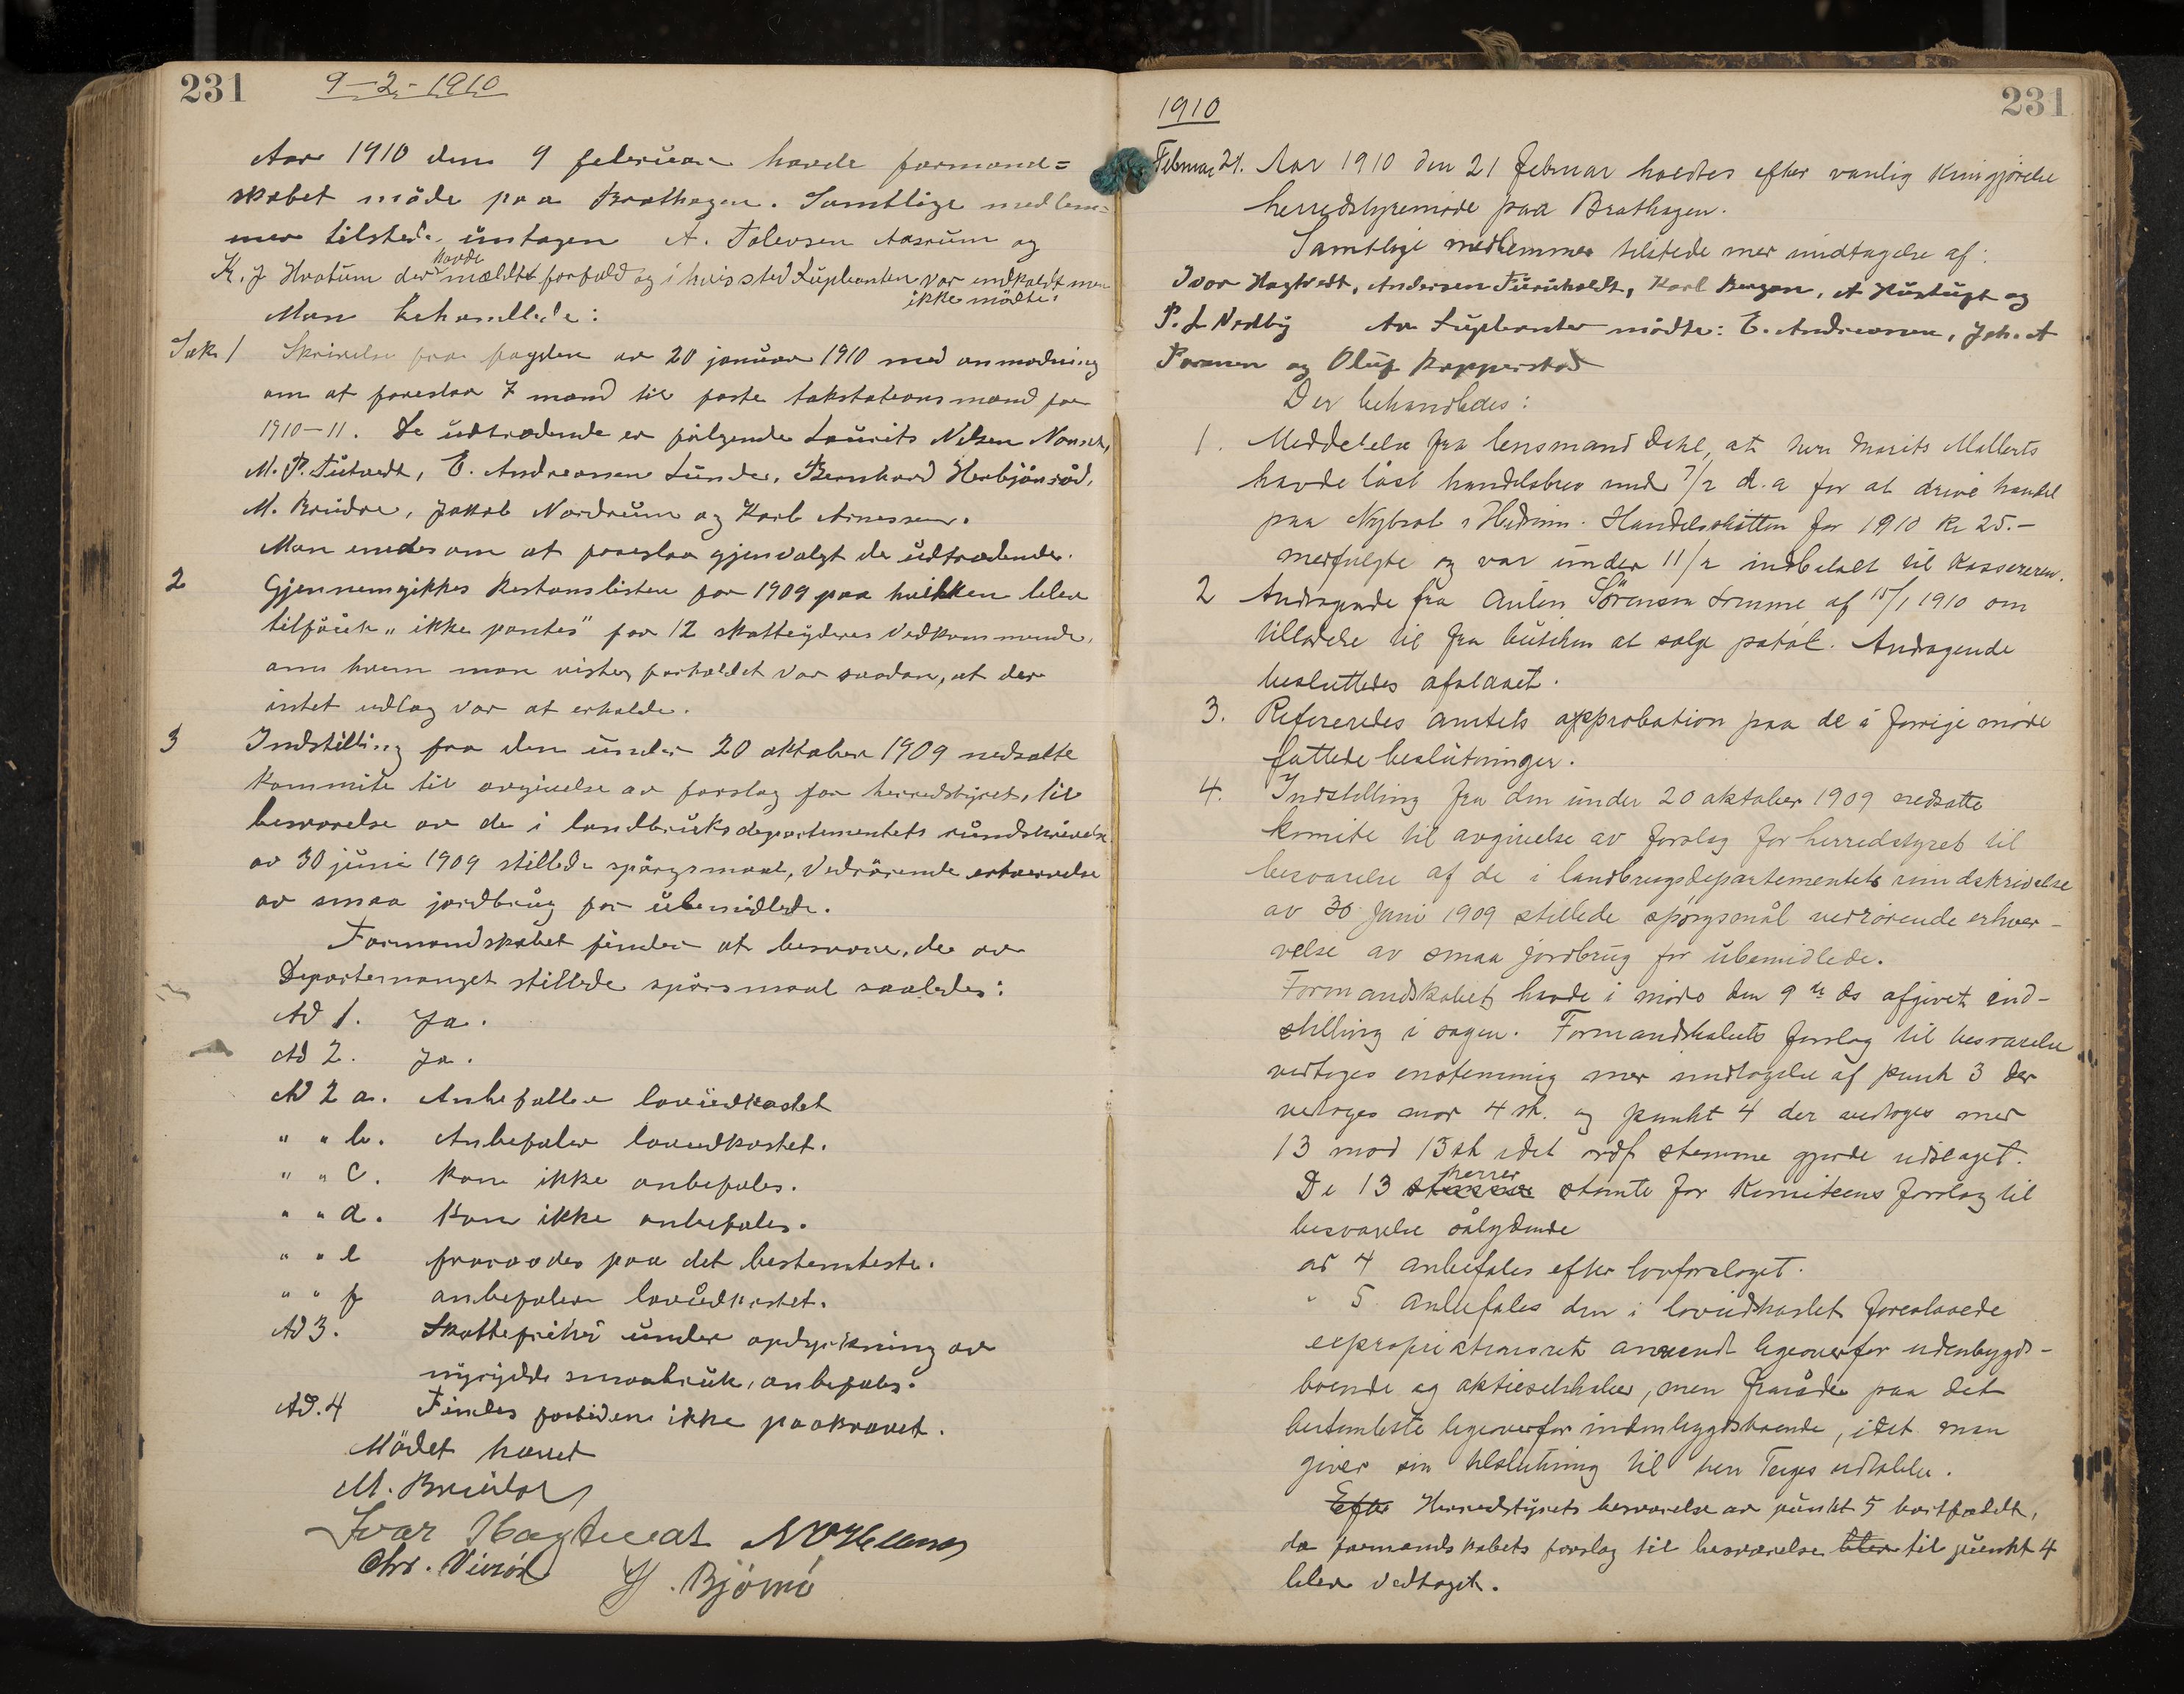 231 9-2-1910
Aar 1910 den 9 februar havde formand=
skabet möde paa Brathagen. Samtlige medlem=
mer tilstede untagen A. Tolevsen Aasrum og
K. J Hvatum der havde mældt forfald og i hvis sted Supleanten var indkaldt men
ikke mödte.
Man behandlede:
Sak 1 Skrivelse fra fogden av 20 januar 1910 med anmodning
om at foreslaa 7 mand til faste takstationsmænd for
1910-11. De udtrædende er følgende Laurits Nilsen
M. P. Tutvedt, E. Andreassen Lunde, Bernhard Herbjönröd,
M. Brudor, Jakob Nordrum og Karl Arnessen.
Man enedes om at foreslaa gjenvalgt de udtrædende.
2 Gjennemgikkes Restanslisten for 1909 paa hvilken blev
tilföiet „ikke pantes" for 12 skatteyderes Vedkommende,
om hvem man vister forholdet var saadan, at der
intet udlæg var at erholde.
3 Indstilling fra den under 20 oktober 1909 nedsatte
Kommite til avgivelse av forslag for herredstyret, til
besvarelse av de i landbruksdepartementets rundskrivelse
av 30 juni 1909 stillede spörgsmaal, Vedrörende erhvervelse
av smaa jordbrug for ubemidlede.
Formandskabet finder at besvare, de av
stillede spörsmaal saaledes:
Ad 1. Ja.
Ad 2. Ja.
Ad 2 a. Anbefaller lovudkastet
" " b. Anbefaler lovudkastet.
" " c. Kan ikke anbefales.
" " d. Kan ikke anbefales.
" " e fraraades paa det bestemteste.
" " f anbefaler lovudkastet.
Ad 3. Skattefrihet under opdyrkning av
nyrydde smaabruk, anbefales.
Ad. 4 Findes fortiden ikke paakrævet.
Mödet hævet
M. Brudor
Ivar Hagtvedt
Chr. H. Björnö
1910 231
Februar 21. Aar 1910 den 21 februar holdtes efter vanlig kungjörelse
herredstyremöde paa Brathagen.
Samtlige medlemmer tilstede mer undtagelse af:
Ivar Hagtvedt, Andersen Furuholdt, Karl Bergan, A og
P. L Nedby Av Supleanter mödte: E. Andreassen, Joh. A
og Oluf Kopperstad
Der behandledes:
1. Meddelelse fra lensmand Dehl, at herr Marits Mallerts
havde löst handelsbrev under 7/2 d. a for at drive handel
paa Nybrot i Hedrum. Handelsskatten for 1910 Kr 25.-
medfulgte og var under 11/2 indbetalt til kassereren.
2 Andragende fra Anton Sörensen Lomme af 15/1 1910 om
tilladelse til fra butiken at sælge patöl. Andragende
besluttedes afslaaet.
3. Refereredes amtets approbation paa de i forrige möde
fattede beslutninger.
4. Indstilling fra den under 20 oktober 1909 nedsatte
komite til avgivelse av forslag for herredstyret til
besvarelse af de i landbrugsdepartementets rundskrivelse
av 30 Juni 1909 stillede spörgsmål vedrörende erhver-
velse av smaa jordbrug for ubemidlede.
Formandskabet havde i möde den 9 de ds afgivet ind-
stilling i sagen. Formandskabets forslag til besvarelse
vedtoges enstemmig mer undtagelse af punk 3 der
vedtoges mod 4 st. og punkt 4 der vedtoges mer
13 mod 13 st idet ordf stemme gjorde udslaget.
De 13 herrer stemte for Komiteens forslag til
besvarelse sålydende
ad 4 anbefales efter lovforslaget.
" 5 anbefales den i lovudkastet foreslaaede
expropriationsret anvendt ligeoverfor udenbygds-
boende og aktieselskaber, men fraråder paa det
bestemteste ligeoverfor indenbygdsboende, idet man
giver sin tilslutning til herr Terges udtalelse.
Efter Herredstyrets besvarelse av punkt 5 bortfaldt,
da formandskabets forslag til besvarelse blev til punkt 4
blev Vedtaget.